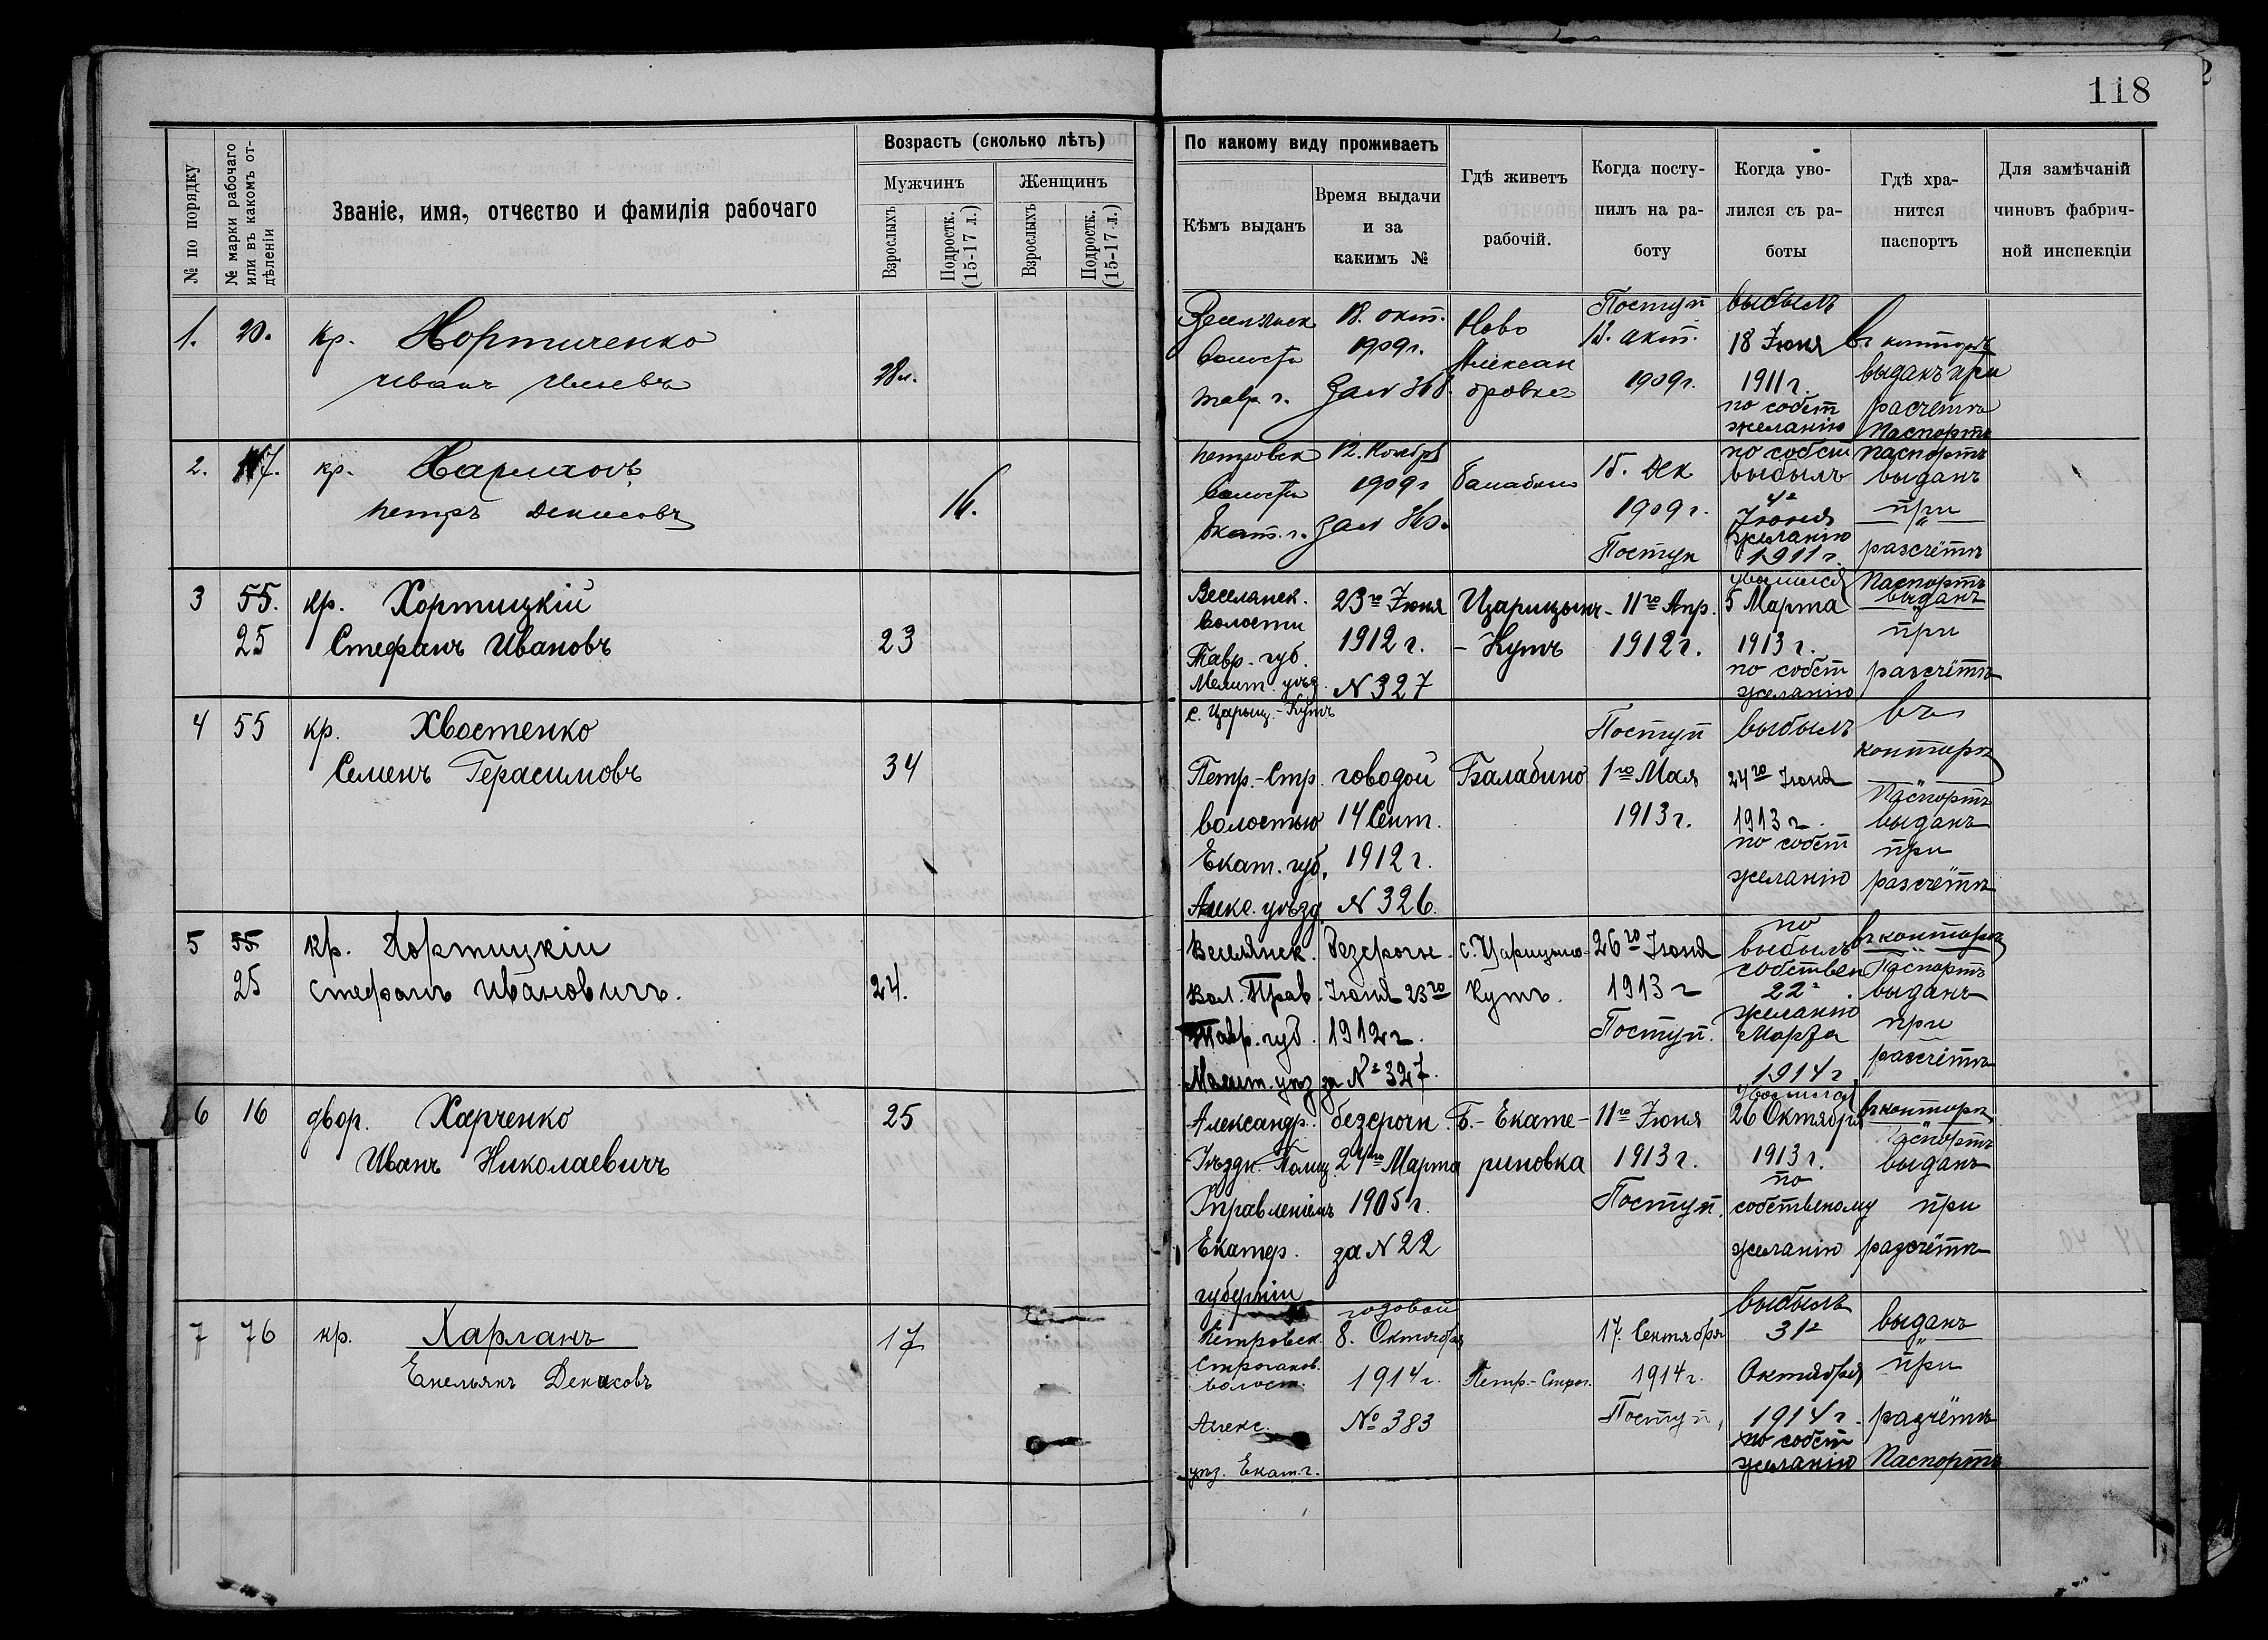 118
№ по порядку
№ марки рабочаго или въ какомъ отдѣленіи
Званіе, имя, отчество и фамилія рабочаго
Возрастъ (сколько лѣтъ)
Мужчинъ
Женщинъ
Взрослыхъ
Подростк. (15-17 л.)
Взрослыхъ
Подростк. (15-17 л.)
По какому виду проживаетъ
Кѣмъ выданъ
Время выдачи
и за
какимъ №
Гдѣ живетъ
рабочій.
Когда посту-
пилъ на ра-
боту
Когда уво-
лился съ ра-
боты
Гдѣ хра-
нится
паспортъ
Для замѣчаній
чиновъ фабрич-
ной инспекціи
1.
20.
кр.
Иванъ
волости
Тавр. г.
18. окт.
1909г.
Ново
Александровке
Поступ
окт.
1909г.
выбылъ
18 Іюня
1911 г.
по собст
желанію
въ конторѣ
выданъ при
расчетѣ
Паспортъ
2.
кр.
Петръ Денисовъ
16.
Петровск
волости
Екат. г.
12. Ноября
1909г
15. Дек
1909 г.
Поступ
по собст
выбылъ
4го
Іюня
желанію
1911 г.
Паспортъ
выданъ
при
разсчётѣ
3
55.
25
кр. Хортицкій
Стефанъ Ивановъ
23
Веселянск.
волости
Тавр. губ.
Мелит. уѣз.
с. Царыц.-Кутъ
23го Іюня
1912 г.
N 327
Царицынъ-
-Кутъ
11го Апр.
1912 г.
уволился
5 Марта
1913 г.
по собст
желанію
Паспортъ
выданъ
при
разсчётѣ
4
55
кр. Хвостенко
Семенъ Герасимовъ
34
Петр.-Стр.
волостью
Екат. губ.
Алекс. уѣзд.
говодой
14 Сент.
1912 г.
N 326.
Балабино
Поступ
1го Мая
1913 г.
выбылъ
24го Іюня
1913 г.
по собст
желанію
въ
конторѣ
Паспортъ
выданъ
при
разсчётѣ
5
55
25
кр. Хортицкій
Стефанъ Ивановичъ.
24.
Веселянск.
Вол. Прав.
Тавр. губ.
Мелит. уѣз
безсрочн.
Іюня 23го
1912 г.
за № 327.
с. Царицыно-
Кутъ.
26го Іюня
1913 г
Поступ.
по
выбылъ
собствен
22го
желанію
Марта
1914 г
въ конторѣ
Паспортъ
выданъ
при
разсчётѣ
6
16
двор. Харченко
Иванъ Николаевичъ
25
Александр.
Уѣздн. Полиц.
Управленіемъ
Екатер.
губерніи
безсрочн.
1905 г.
за N 22
Б.-Екате-
риновка
11го Іюня
1913 г.
Поступ.
уволился
26 Октября
1913 г.
по
собственому
желанію
въ конторѣ
Паспортъ
выданъ
при
разсчётѣ
7
76
кр. Харланъ
Емельянъ Денисовъ
17
Петровск.
Строганов.
волост.
Алекс.
уѣз. Екат. г.
годовой
8. Октября
1914 г.
№ 383
Петр.-Строг.
17. Сентября
1914 г.
Поступ.
выбылъ
31го
Октября
1914 г.
по собст
желанію
выданъ
при
разчётѣ
Паспортъ